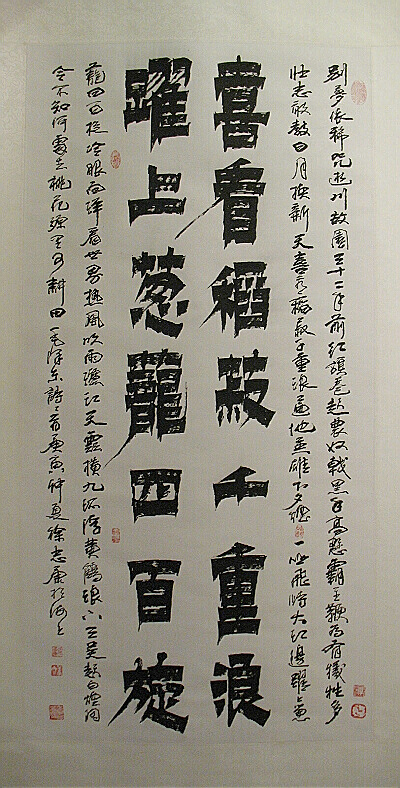 别夢依稀咒逝川故園三十二年前红旗卷起農奴戟黑手高懸霸主鞭为有犧牲多
壮志敢教日月换新天喜看稻菽千重浪遍地英雄下夕烟一山飛峙大江邊躍上葱
喜看稻菽千重浪
躍上葱蘢四百旋
蘢四百旋冷眼向洋看世界热風吹雨洒江天雲横九派浮黄鶴浪下三吴起白烟陶
令不知何處去桃花源里可耕田毛泽东詩二首庚寅仲夏徐志於海上